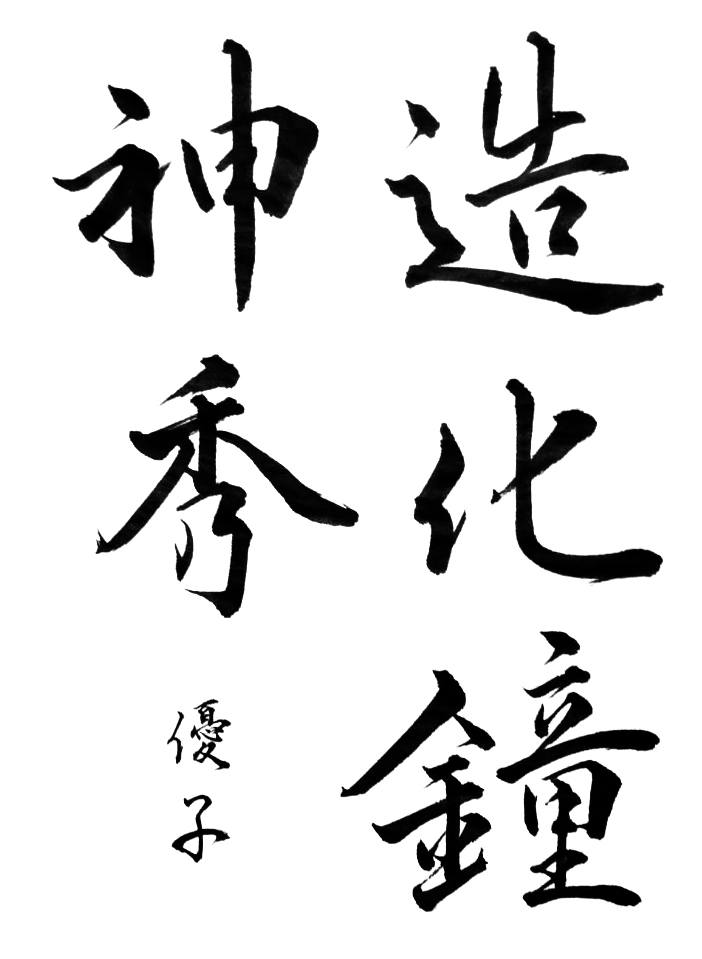 造化鐘
神秀
優子